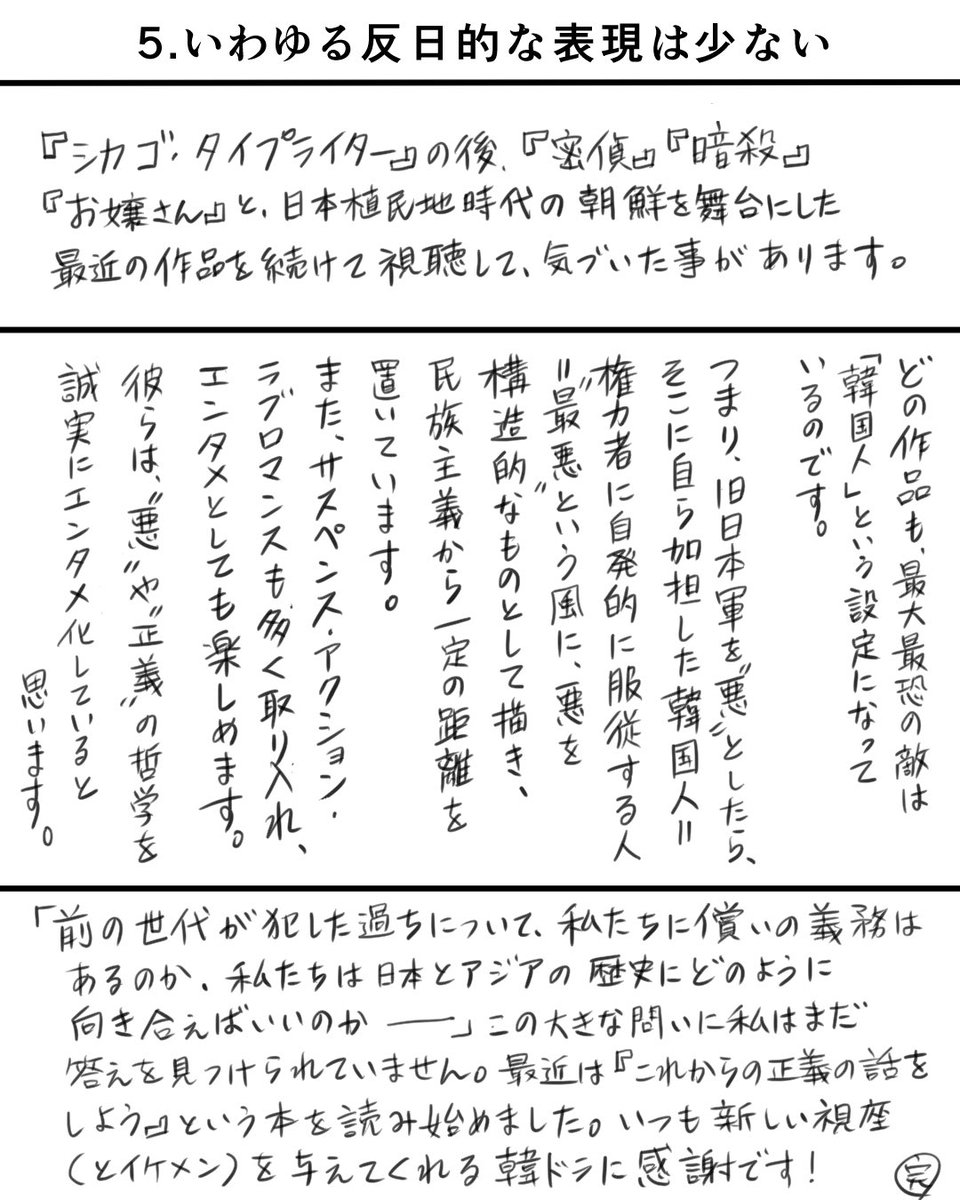 5.いわゆる反日的な表現は少ない
『シカゴ・タイプライター』の後、『密偵』『暗殺』
『お嬢さん』と、日本植民地時代の朝鮮を舞台にした
最近の作品を続けて視聴して、気づいた事があります。
どの作品も、最大最恐の敵は
「韓国人」という設定になって
いるのです。
つまり、旧日本軍を〝悪〟としたら、
そこに自ら加担した韓国人=
権力者に自発的に服従する人
=〝最悪〟という風に、悪を
構造的なものとして描き、
民族主義から一定の距離を
置いています。
また、サスペンス・アクション・
ラブロマンスも多く取り入れ、
エンタメとしても楽しめます。
彼らは、〝悪〟や〝正義〟の哲学を
誠実にエンタメ化していると
思います。
「前の世代が犯した過ちについて、私たちに償いの義務は
あるのか、私たちは日本とアジアの歴史にどのように
向き合えばいいのか ――」この大きな問いに私はまだ
答えを見つけられていません。最近は『これからの正義の話を
しよう』という本を読み始めました。いつも新しい視座
(とイケメン)を与えてくれる韓ドラに感謝です!
完